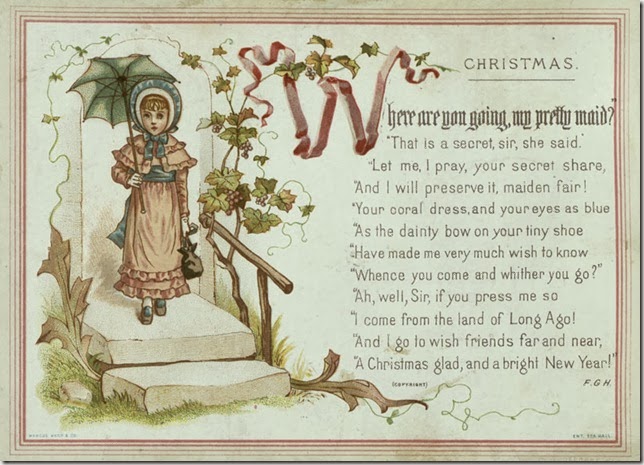 CHRISTMAS.
Where are you going, my pretty maid?"
"That is a secret, sir, she said.
"Let me, I pray, your secret share,
"And I will preserve it, maiden fair!
"Your coral dress, and your eyes as blue
"As the dainty bow on your tiny shoe
"Have made me very much wish to know
"Whence you come and whither you go?"
"Ah, well, Sir, if you press me so
"I come from the land of Long Ago!
"And I go to wish friends far and near,
"A Christmas glad, and a bright New Year!"
(COPYRIGHT)
F.G.H.
MARCUS WARD & CO.
ENT. STA. HALL